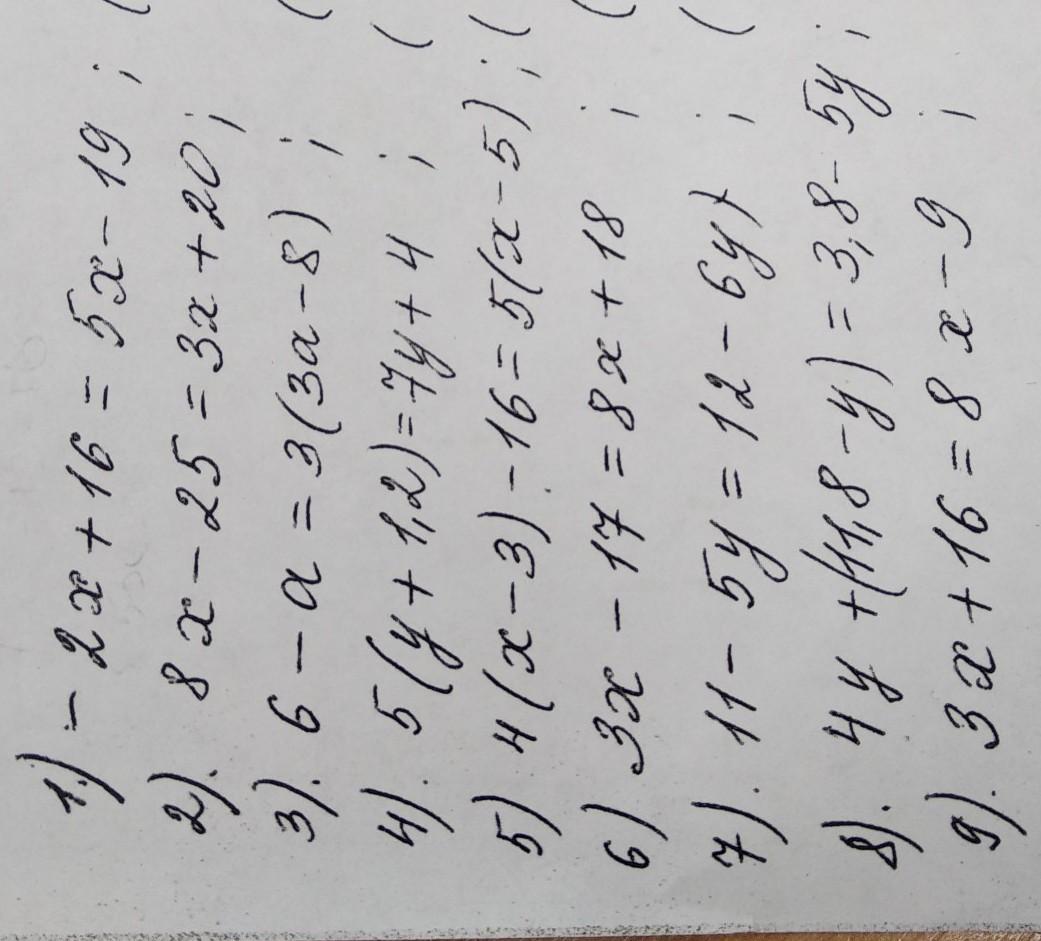 1) - 2x + 16 = 5x - 19 ; (
2). 8x - 25 = 3x + 20 ; (
3). 6 - a = 3(3a - 8) ; (
4). 5(y + 1,2) = 7y + 4 ; (
5) 4(x - 3) - 16 = 5(x - 5) ; (
6) 3x - 17 = 8x + 18 ; (
7). 11 - 5y = 12 - 6y ; (
8). 4y + (11,8 - y) = 3,8 - 5y ;
9). 3x + 16 = 8x - 9 ;